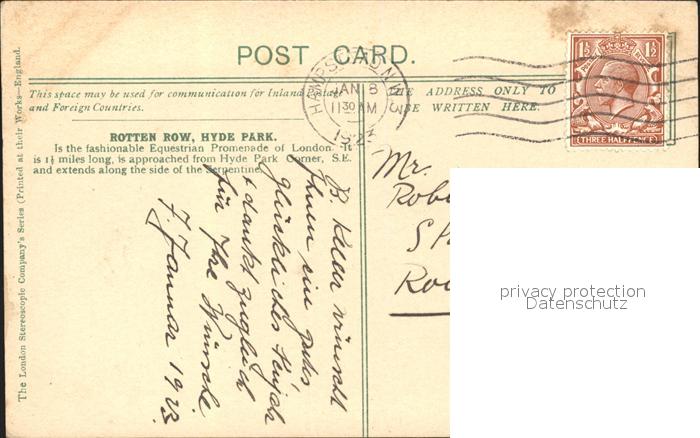 POST CARD.
This space may be used for communication for Inland Postage
and Foreign Countries.
THE ADDRESS ONLY TO
BE WRITTEN HERE.
ROTTEN ROW, HYDE PARK.
Is the fashionable Equestrian Promenade of London. It
is 1½ miles long, is approached from Hyde Park Corner, S.E.
and extends along the side of the Serpentine.
The London Stereoscopic Company's Series (Printed at their Works—England.
HAMPSTEAD N.W.3
JAN 8
11 30 AM
192
1½ 1½
THREE HALFPENCE
B. Keller wünscht
Ihnen ein gutes,
glückliches Neujahr
+ dankt zugleich
für Ihre Wünsche
7. Januar 1923.
Mr.
Rob
S
Ro
privacy protection
Datenschutz